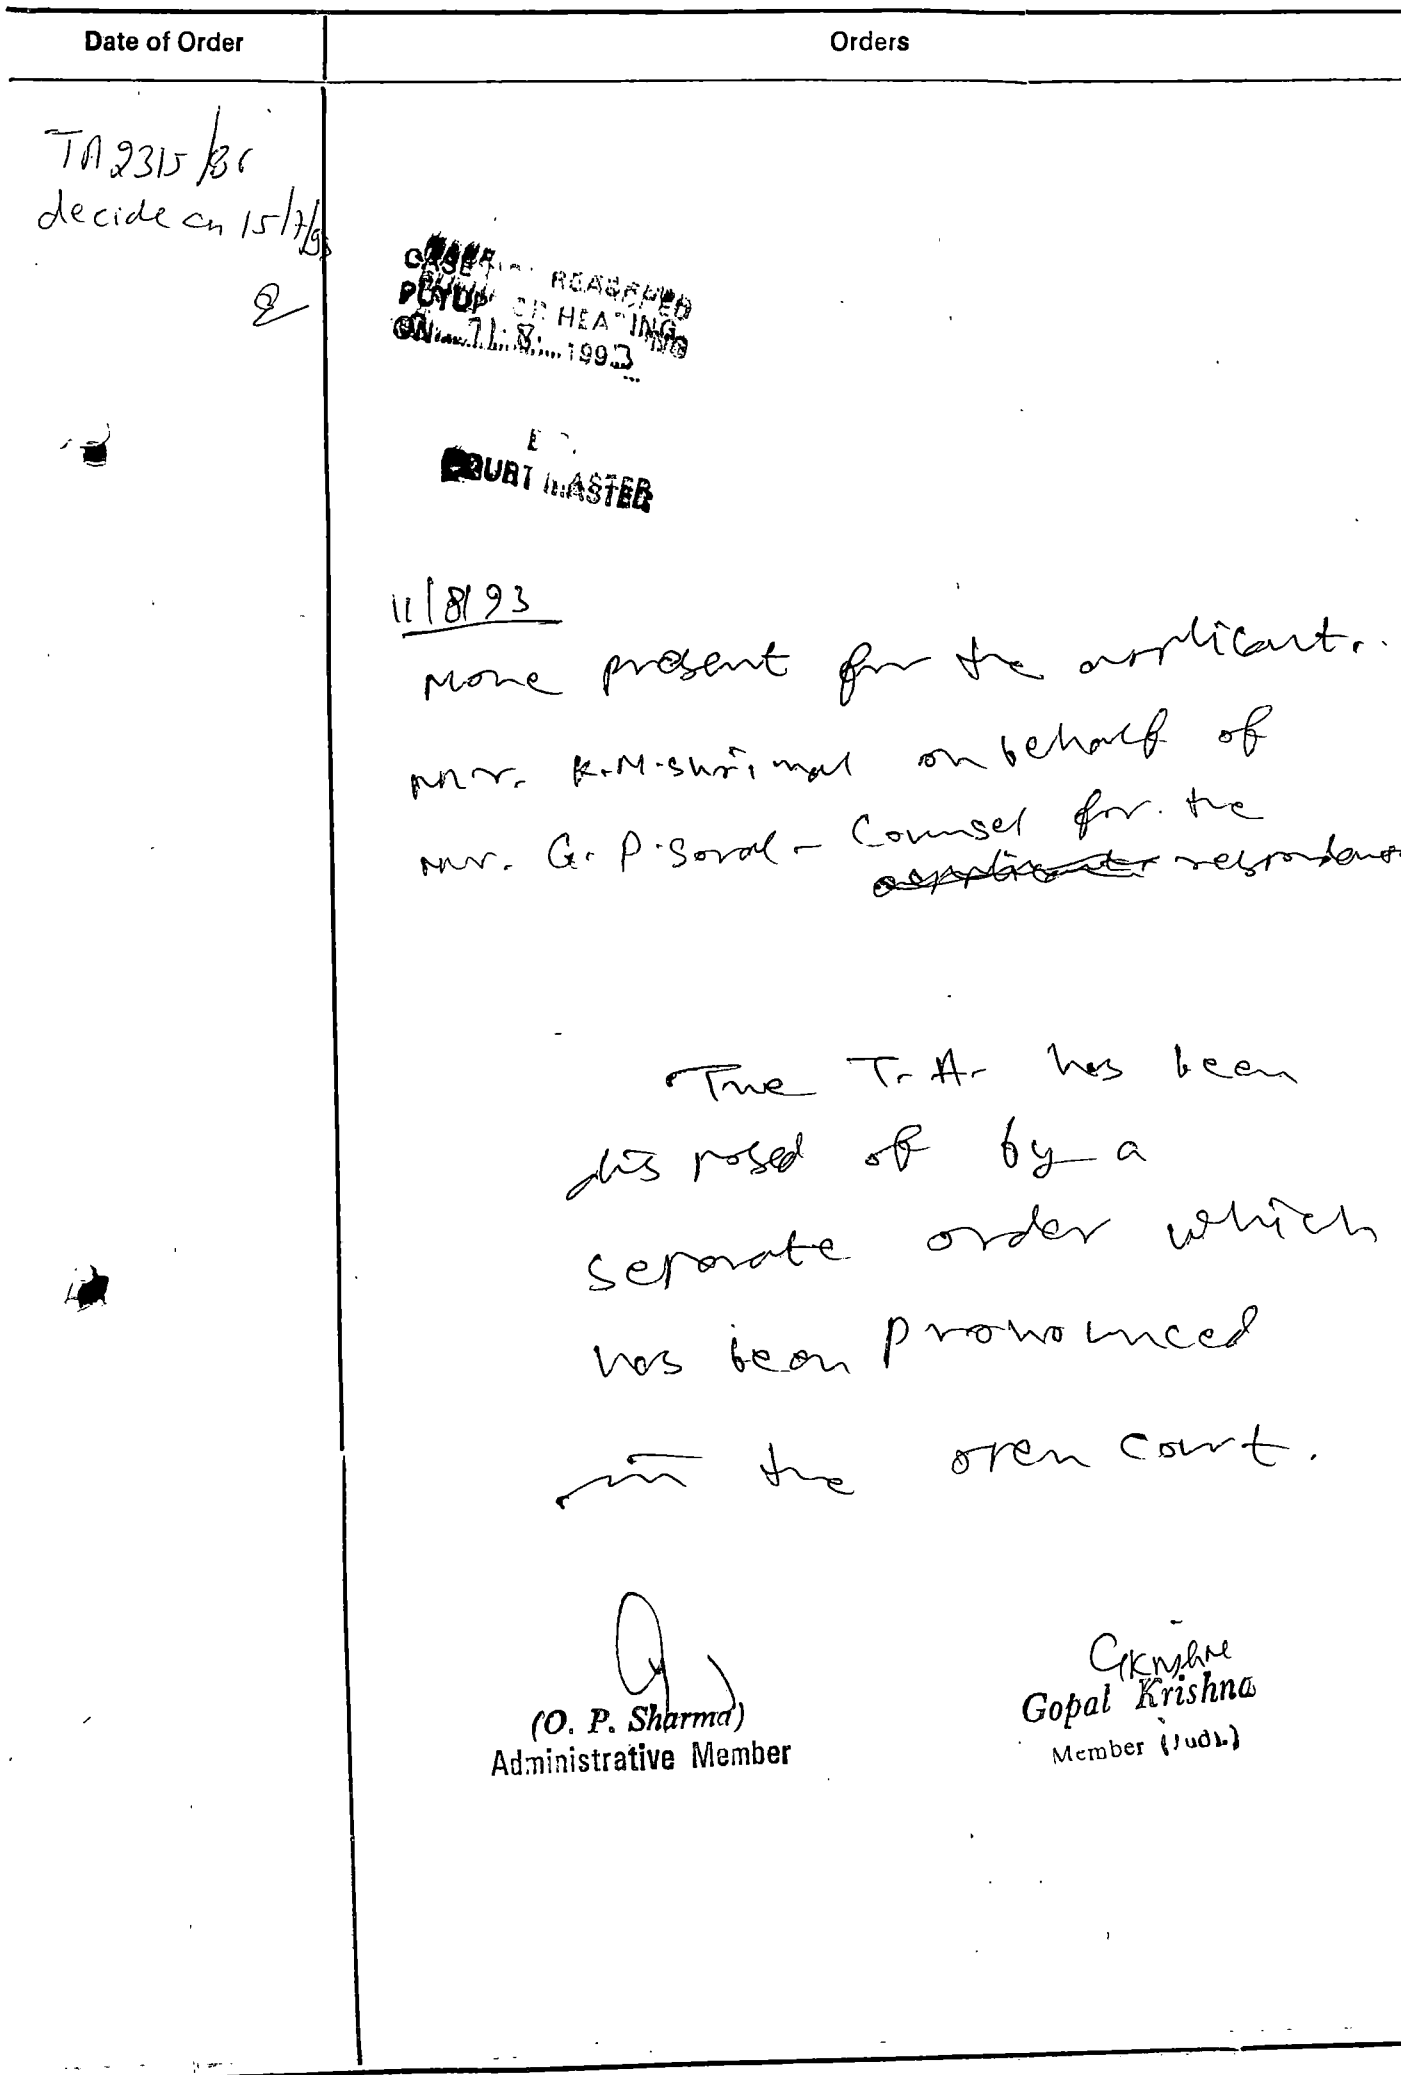 Date of Order
Orders
TA 2315/86
decide on 15/7/93
CASE NOT REACHED
PUT UP FOR HEARING
ON....11.8....1993
COURT MASTER
11/8/93
None present for the applicant.
Mr. K.M. Shrimal on behalf of
Mr. G.P. Soral - Counsel for the
respondents
The T.A. has been
disposed of by a
separate order which
has been pronounced
in the open court.
GKrishna
(O. P. Sharma)
Administrative Member
Gopal Krishna
Member (Judl.)